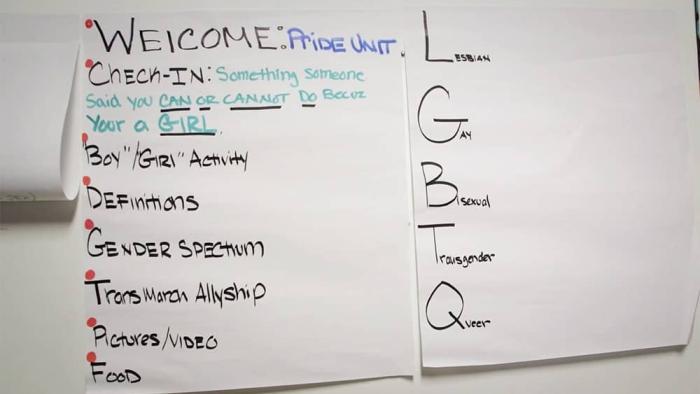 WElCOME: PRiDE UNiT.
CHECK-IN: Something Someone
Said you CAN OR CANNOT DO Becuz
Your a GIRL.
"Boy"/"Girl" Activity
DEFinitions
GENDER SPECtrum
Trans March Allyship
Pictures/VIDEO
FOOD
LESBIAN
GAY
Bisexual
Transgender
Queer